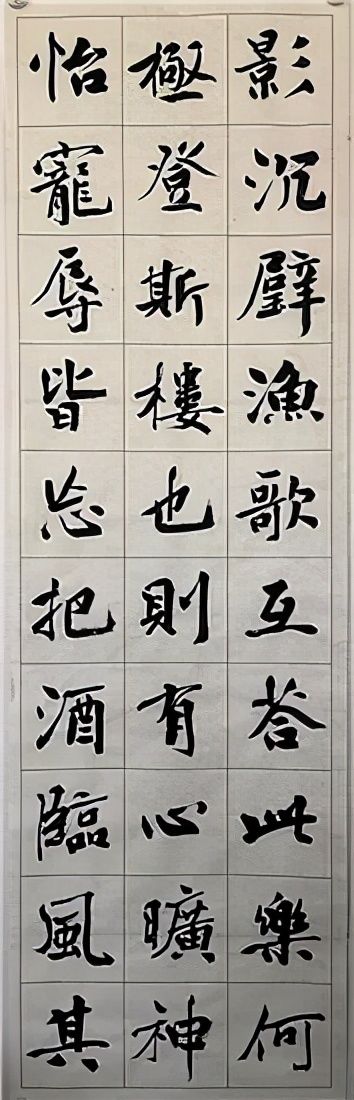 影沉璧漁歌互荅此樂何
極登斯樓也則有心曠神
怡寵辱皆忘把酒臨風其